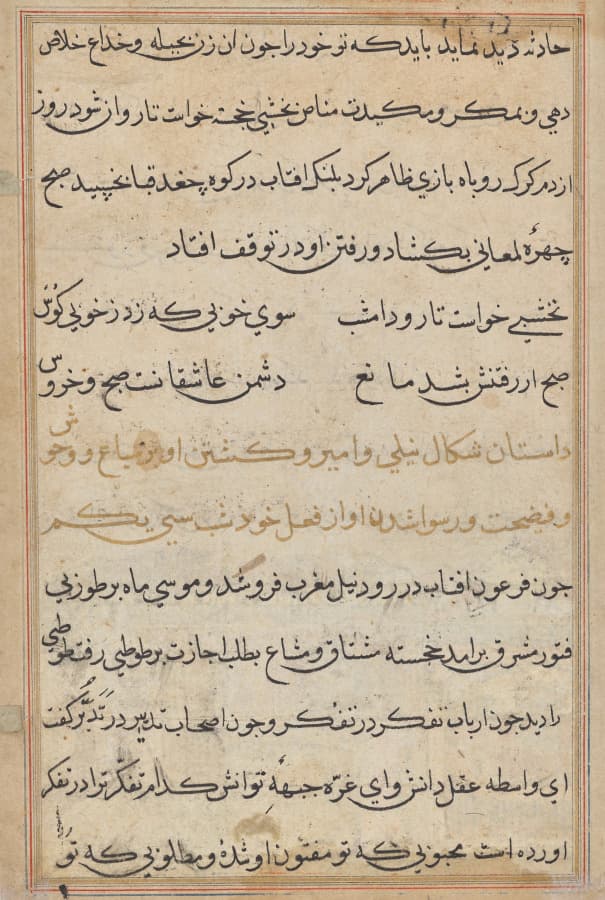 حادثه دید نماید باید که تو خود را جون ان زن بحیله وخداع خلاص
دهی و بمکر و مکیدت مناص بخشیی خجسته خواست تا روان شود روز
از دم کرک روباه بازی ظاهر کرد بلنک افتاب در کوه جغد قبا بخسپید صبح
چهرۀ لمعانی بکشاد و رفتن او در توقف افتاد
نخشبی خواست تا رود امشب سوی خوبی که زد ز خوبی کوس
صبح از رفتنش بشد مانع دشمن عاشقانست صبح و خروس
داستان شکال نیلی و امیر و کشتن او بر سباع و وحوش
و فضیحت و رسوا شدن او از فعل خود شب سی یکم
جون فرعون افتاب در رود نیل مغرب فرو شد و موسی ماه بر طور بی
فتور مشرق برامد خجسته مشتاق و مشاع بطلب اجازت بر طوطی رفت طوطی
را دید جون ارباب تفکر در تفکر و جون اصحاب تدبیر در تدبّر کفت
ای واسطه عقل دانش و ای غرّه جبههٔ توانش کدام تفکّر ترا در تفکر
اورده است محبوبی که تو مفتون او شدۀ و مطلوبی که تو